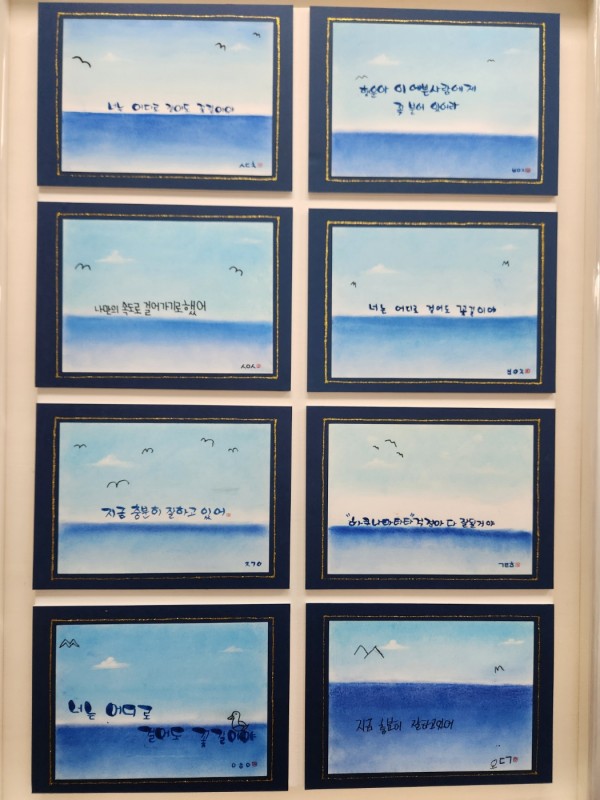 너는 어디로 걸어도 꽃길이야
ㅅㄷㅎ
이 예쁜사람에게
꽃 붙어 있어라
ㅂㅇㅅ
나만의 속도로 걸어가기로했어
ㅅㅇㅅ
너는 어디로 걸어도 꽃길이야
지금 충분히 잘하고 있어
ㅈㄱㅇ
"하쿠나마타타" 걱정마 다 잘될거야
ㄱㅂㅎ
너는 어디로
걸어도 꽃길이야
ㅇㅎㅇ
지금 충분히 잘하고있어